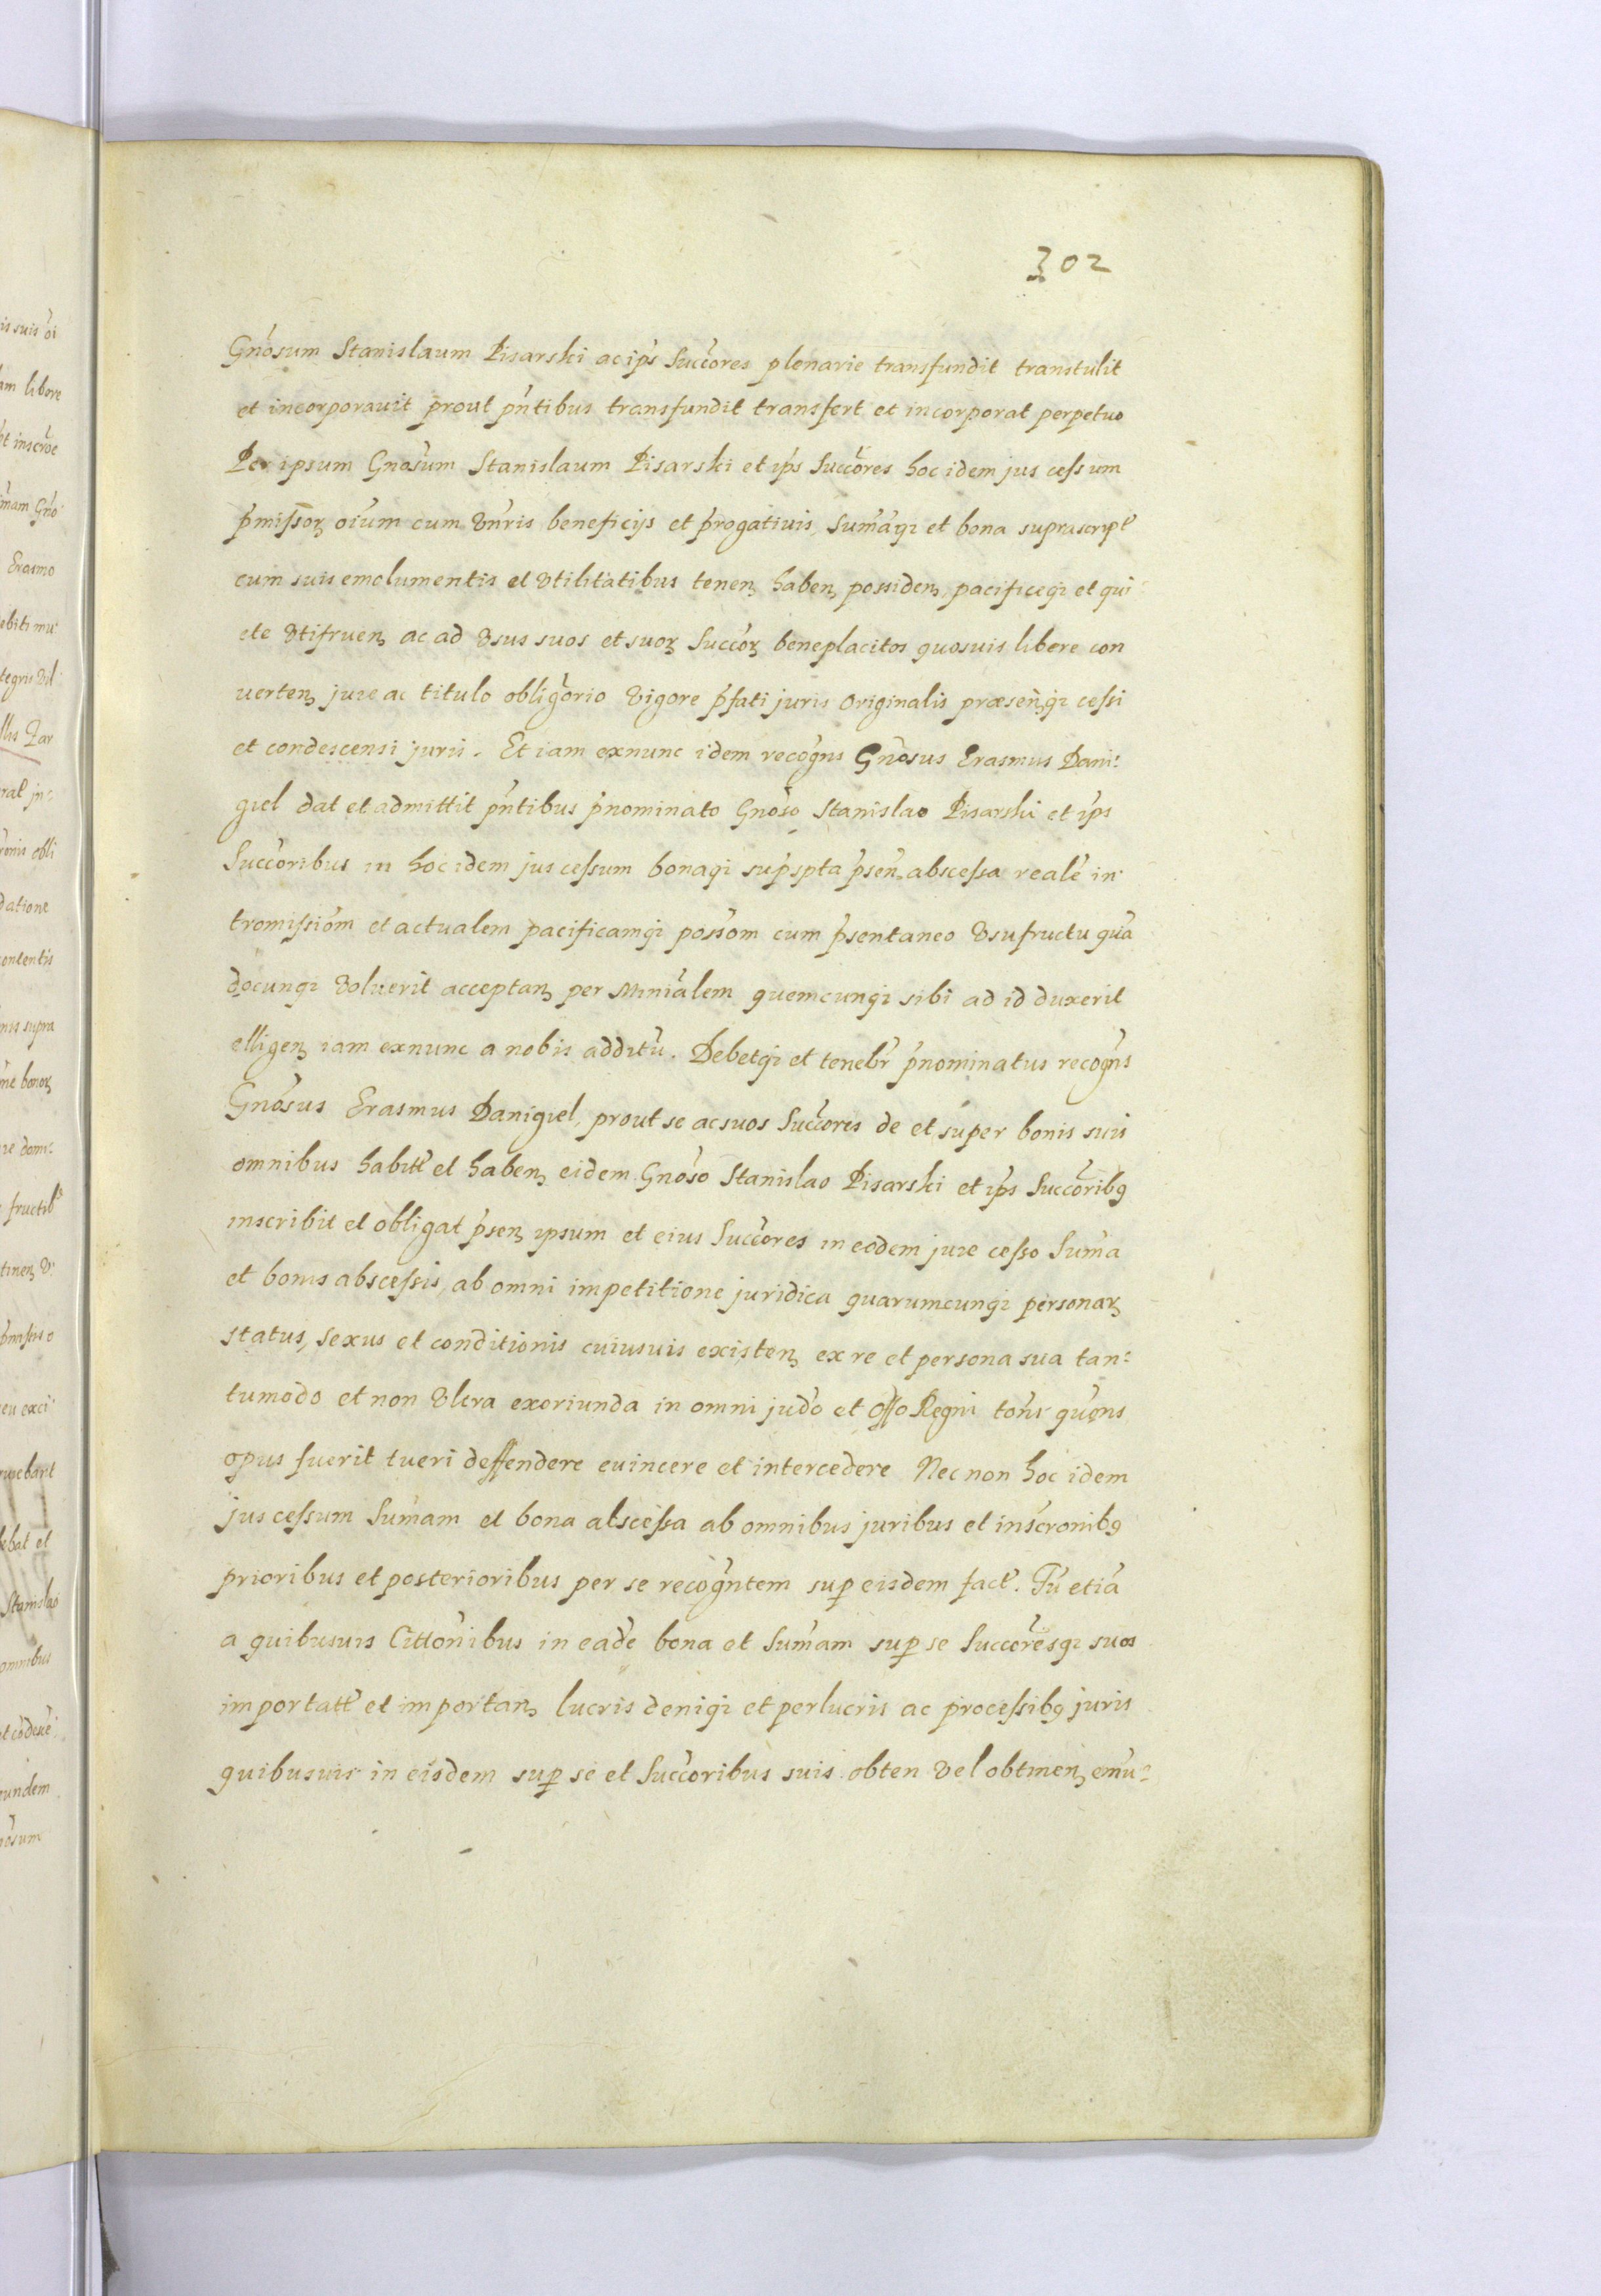 302
Gnosum Stanislaum Pisarski ac ips Succores plenarie transfundit transtulit
et incorporavit prout pntibus transfundit transfert et incorporat perpetuo
Per ipsum Gnosum Stanislaum Pisarski et ips Succores hoc idem jus cessum
pmissoꝝ oium cum Vnris beneficijs et progativis, Sumāqꝫ et bona suprascript
cum suis emolumentis et Vtilitatibus tenenꝫ habenꝫ possidenꝫ pacificeqꝫ et qui
ete Vtifruenꝫ ac ad Vsus suos et suoꝝ Succoꝝ beneplacitos quosuis libere con
uertenꝫ jure ac titulo obligorio Vigore pfati juris Originalis præsenꝫqꝫ cessi
et condescensi juris. Et iam exnunc idem recogns Gnosus Erasmus Dani-
giel dat et admittit pntibus pnominato Gnoso Stanislao Pisarski et ips
Succoribus in hoc idem jus cessum bonaqꝫ supspta psenꝫ abscessa reale in
tromissiom et actualem pacificamqꝫ possom cum psentaneo Vsufructu qua
docunqꝫ Voluerit acceptanꝫ per Minialem quemcunqꝫ sibi ad id duxerit
elligenꝫ iam exnunc a nobis additū. Debetqꝫ et tenebr pnominatus recogns
Gnosus Erasmus Danigiel, prout se ac suos Succores de et super bonis suis
omnibus habitt et habenꝫ eidem Gnoso Stanislao Pisarski et ips Succoribꝰ
inscribit et obligat psenꝫ ipsum et eius Succores in eodem jure cesso Suma
et bonis abscessis, ab omni impetitione juridica quarumcunqꝫ personaꝝ
status, sexus et conditionis cuiusuis existenꝫ ex re et persona sua tan-
tumodo et non Vltra exoriunda in omni judo et Offo Regni tons quons
opus fuerit tueri deffendere euincere et intercedere Nec non hoc idem
jus cessum Sumam et bona abscessa ab omnibus juribus et inscronibꝰ
prioribus et posterioribus per se recogntem suꝑ eisdem fact. Tū etiā
a quibusuis Cittonibus in eade bona et Sumam suꝑ se Succoresqꝫ suos
importatt et importanꝫ lucris deniqꝫ et perlucris ac processibꝰ juris
quibusuis in eisdem suꝑ se et Succoribus suis obten Vel obtinenꝫ emu-